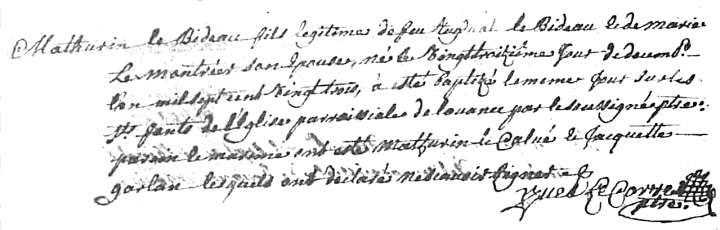 Mathurin le Bideau fils legitime de feu Tugdual le Bideau & de marie
Le montréer son Epouse, né le vingttroiziême jour de decembr.
l'an mil sept cent vingt trois, à esté Baptizé le meme jour sur les
sts. fonts de l'Eglise parroissiale de louance par le soussigné ptre.
parain & maraine ont esté Mathurin le Calvé & Jacquette
garlan lesquels ont déclaré ne scavoir signer
Yves Le Corre
ptre.